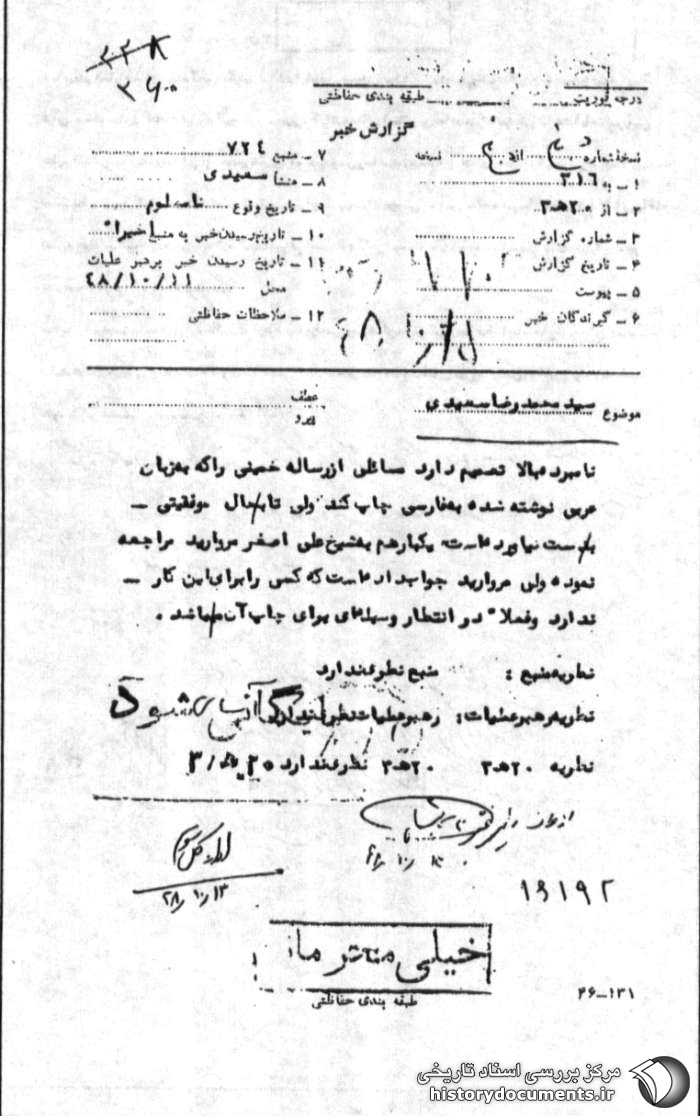 ۲۳۸
درجه فوریت
طبقه بندی حفاظتی
گزارش خبر
نسخه شماره
از
نسخه
۱ ــ به ۳۱۶
۲ ــ از ۲۰ه۳
۳ ــ شماره گزارش
۴ ــ تاریخ گزارش
۵ ــ پیوست
۶ ــ گیرندگان خبر
۷ ــ منبع ۷۲۴
۸ ــ منشأ سعیدی
۹ ــ تاریخ وقوع نامعلوم
۱۰ ــ تاریخ رسیدن خبر به منبع اخیرا"
۱۱ ــ تاریخ رسیدن خبر برهبر عملیات
محل ۴۸/۱۰/۱۱
۱۲ ــ ملاحظات حفاظتی
موضوع سید محمد رضا سعیدی
عطف
پیرو
نامبرده بالا تصمیم دارد مسائلی از رساله خمینی را که بزبان
عربی نوشته شده بفارسی چاپ کند ولی تا بحال موفقیتی ــ
بدست نیاورده است یکبار هم بشیخ علی اصغر مروارید مراجعه
نموده ولی مروارید جواب داده است که کسی را برای این کار ــ
ندارد و فعلا" در انتظار وسیله‌ای برای چاپ آن میباشد .
نظریه منبع : منبع نظری ندارد
نظریه رهبر عملیات : رهبر عملیات نظری ندارد
نظریه ۲۰ه۳ ۲۰ه۳ نظری ندارد
اداره کل سوم
۴۸/۱۰/۱۳
۱۶۱۹۲
خیلی محرمانه
طبقه بندی حفاظتی
۴۶-۱۳۱
مرکز بررسی اسناد تاریخی
historydocuments.ir